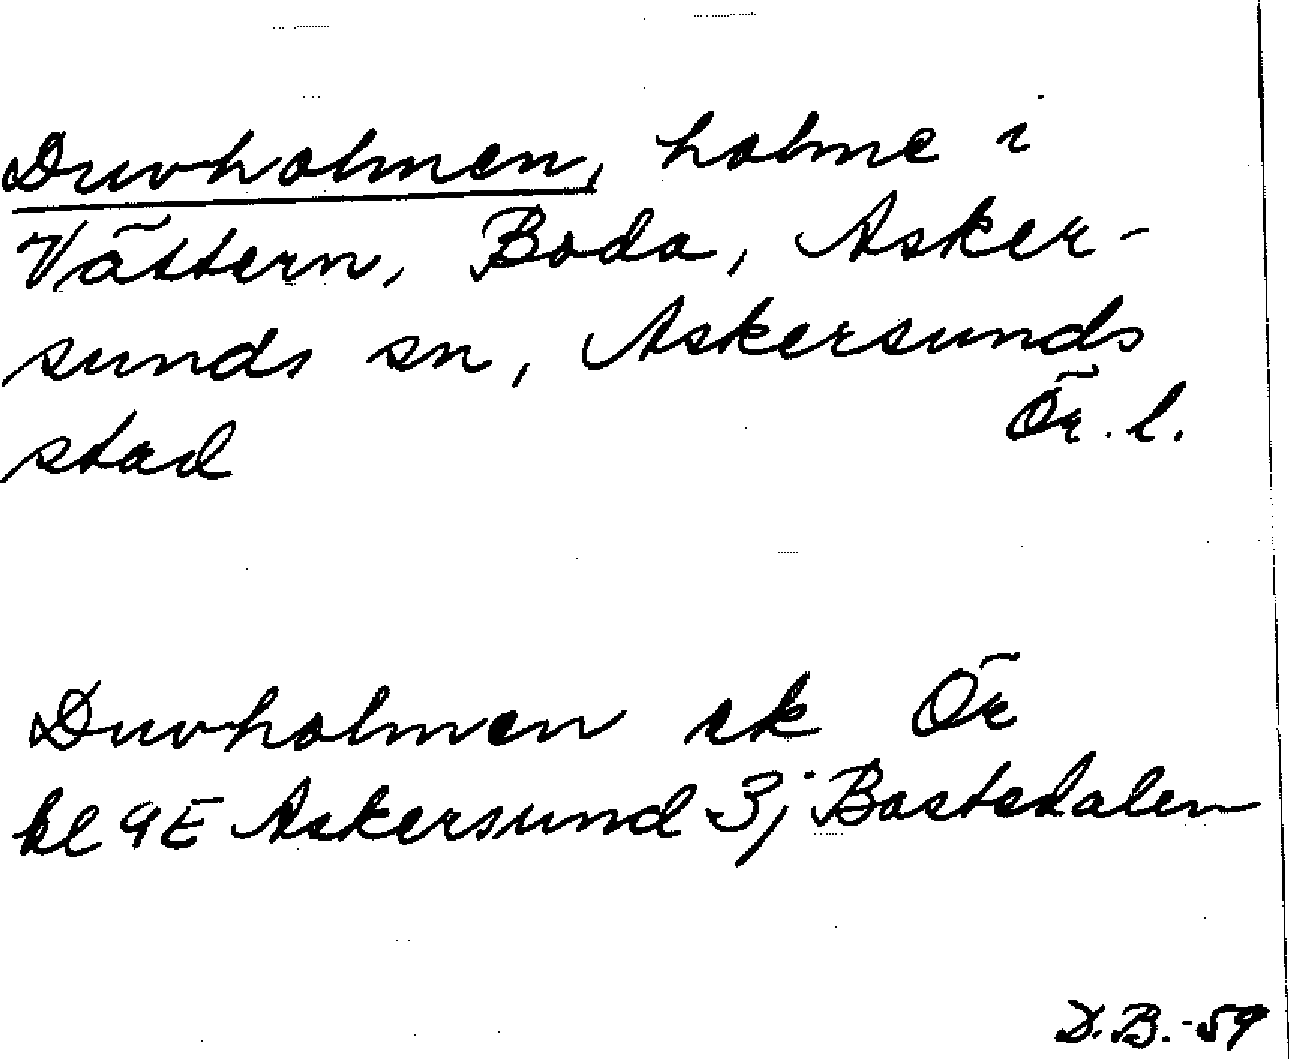 Duvholmen, holme i
Vättern, Boda, Asker-
sunds sn, Askersunds
stad Ör. l.
Duvholmen ek Ör
bl 9E Askersund 3j Bastedalen
D.B.-59